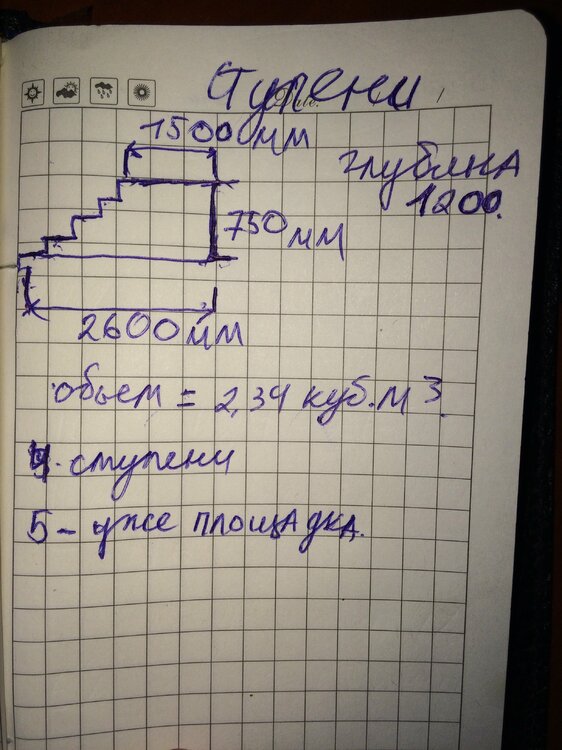 Ступени
1500мм
глубина
1200.
750мм
2600мм
обьем = 2,34 куб.м3.
4. ступени
5 - уже площадка.